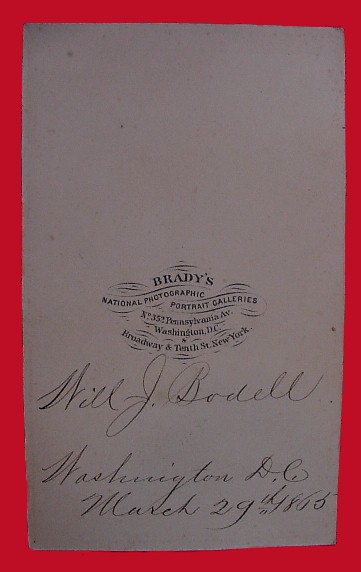 BRADY'S
NATIONAL PHOTOGRAPHIC
PORTRAIT GALLERIES
No. 352 Pennsylvania Av.
Washington, D.C.
&
Broadway & Tenth St. New York.
Will J. Bodell.
Washington D.C
March 29th 1865